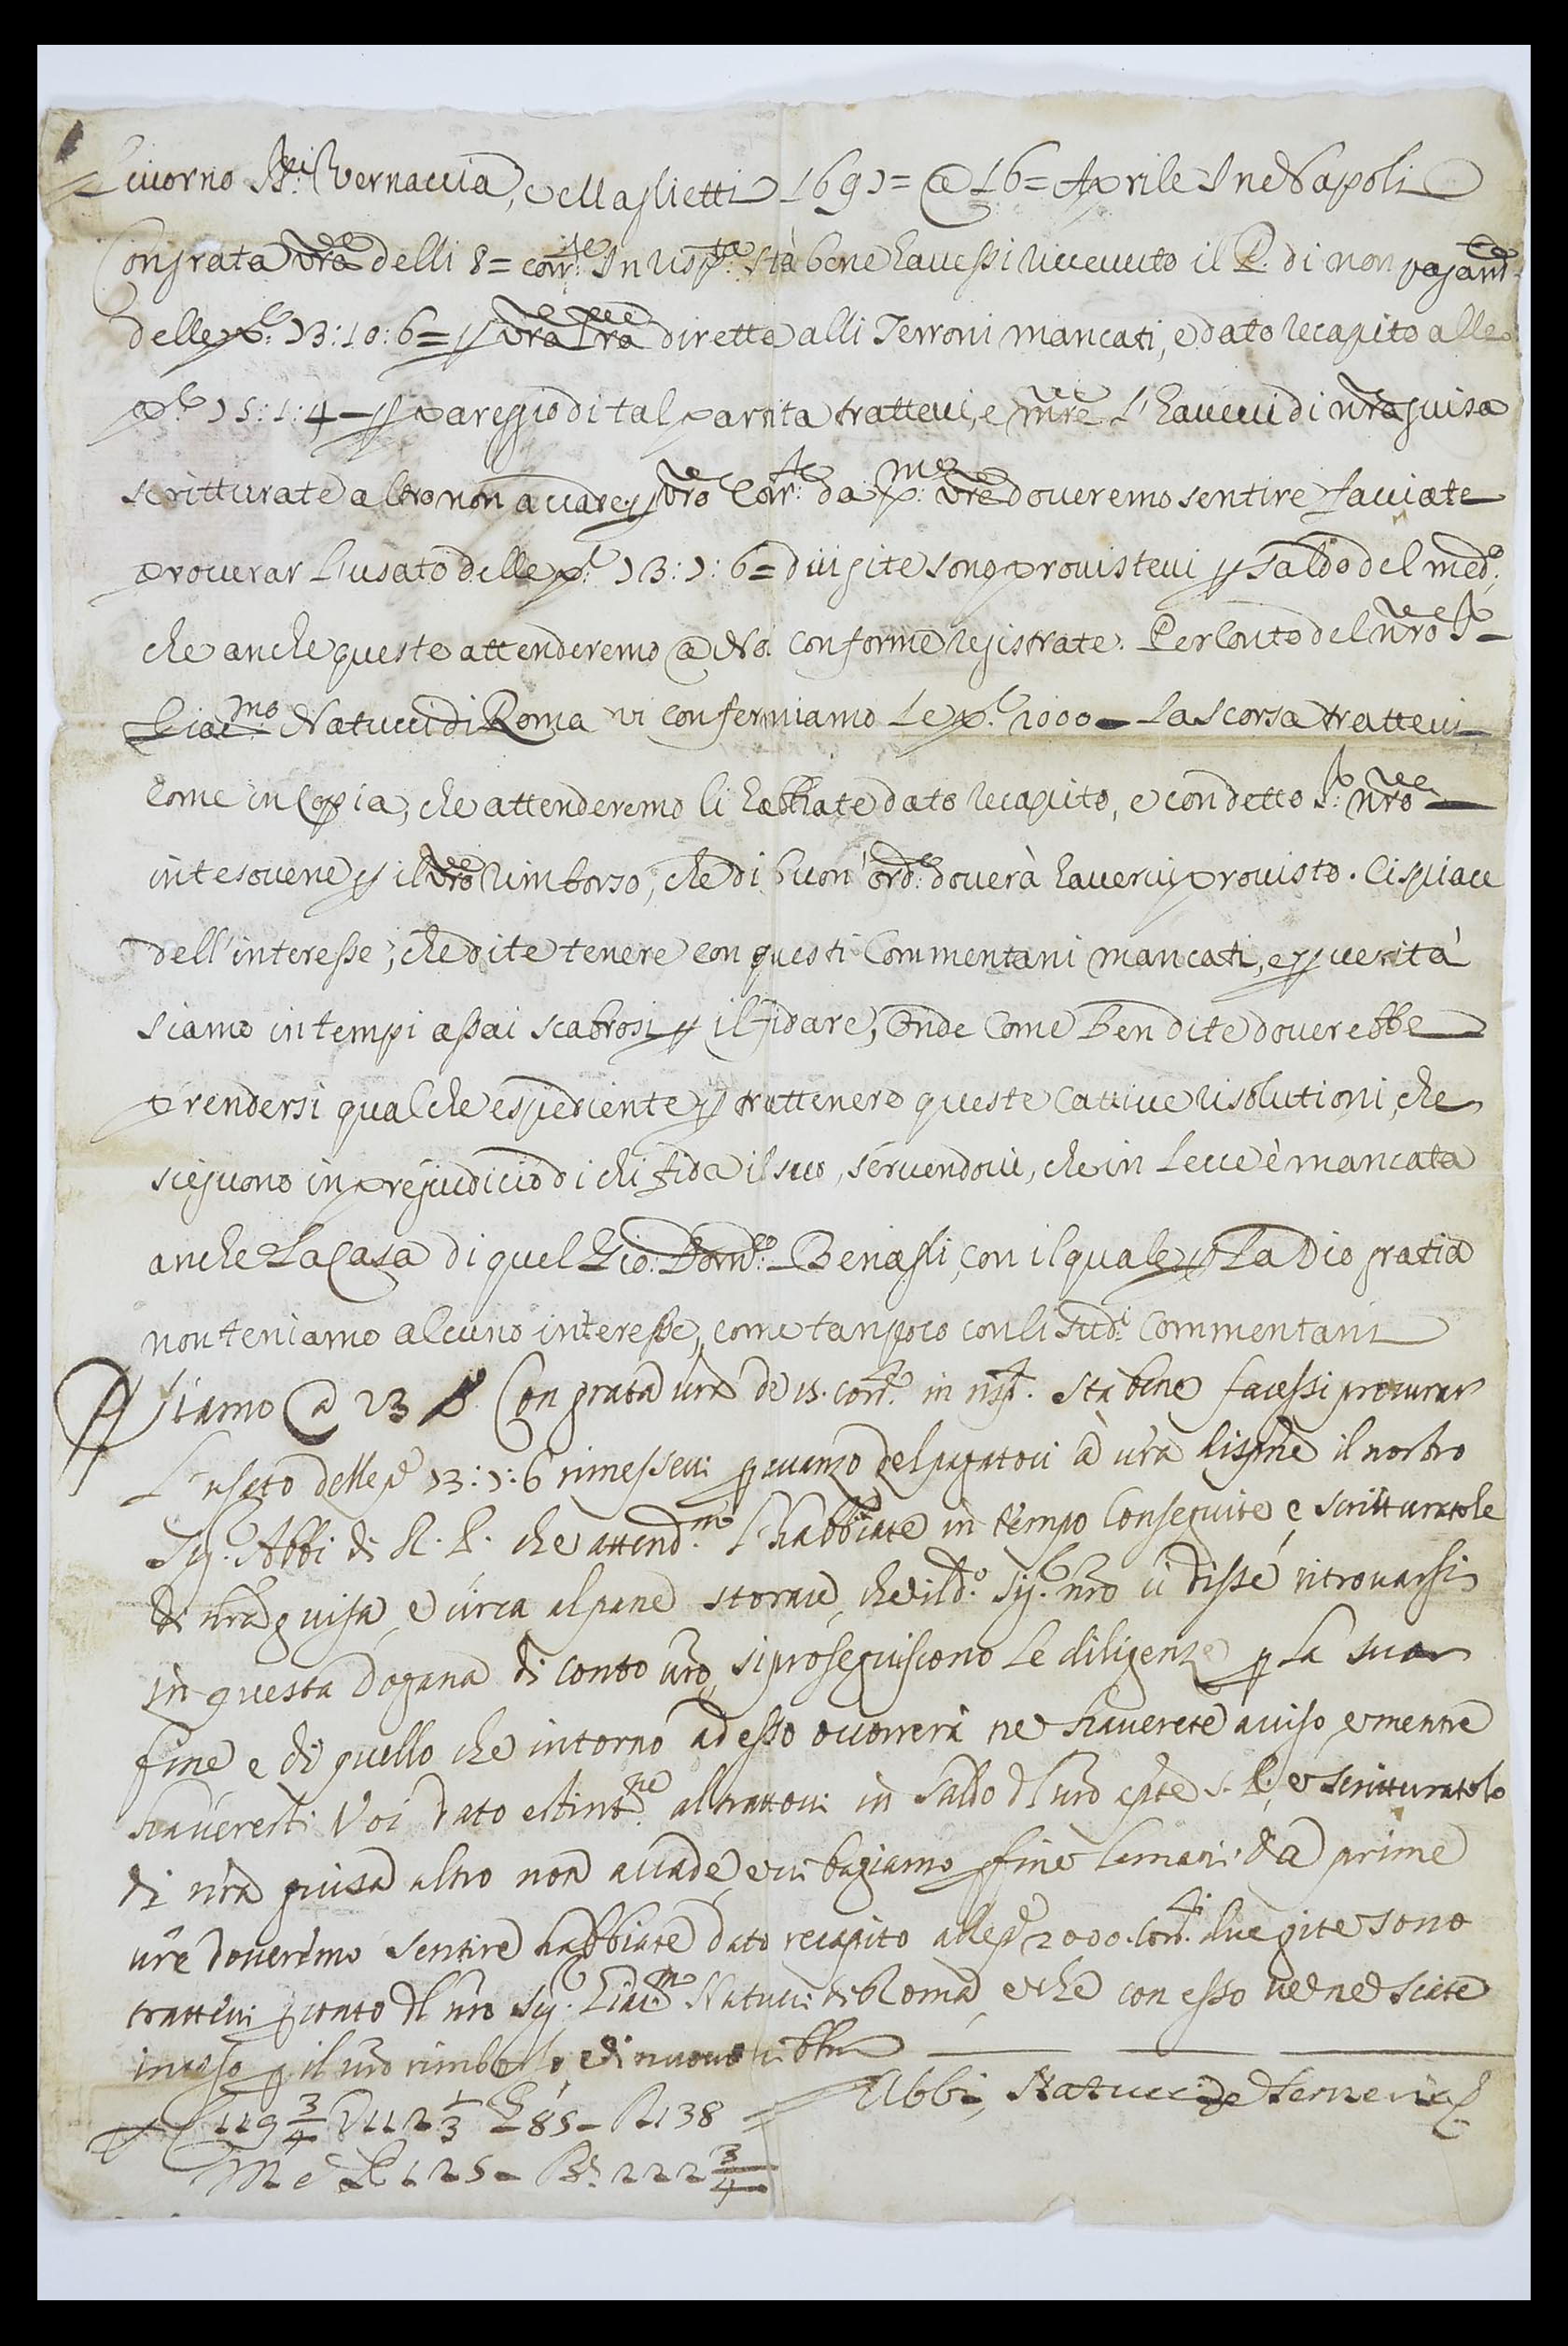 Livorno SS.ri Vernaccia, e Maglietti 1697= @ 16= Aprile In Napoli
Con grata vra delli 8= corr.te In risp.ta stà bene havessi riceuuto il P. di non pagam.to
delle p.e 73:10:6= p vra lra dirette alli Terroni mancati, e dato recapito alle
p.e 75:1:4 — p pareggio di tal partita tratteui, e mre l'haueui di nra guisa
scritturate altro non accade p vro Cor.te da p.me vre doueremo sentire facciate
procurar l'usato delle p.e 73:7:6= di vi gite sono prouisteui p saldo del med.o,
che anche queste attenderemo @ No. conforme registrate. Per Conto del nro S.r
Giac.mo Natucci di Roma vi confermiamo le p.e 2000 — la scorsa tratteui
come in Copia, che attenderemo li habbiate dato recapito, e con detto S.r nro
intesouene p il vro rimborso, che di buon' ord.e douerà hauerui prouisto. Ci spiace
dell'interesse, che dite tenere con questi Commentani mancati, e p uerità
siamo in tempi assai scabrosi p il fidare, Onde Come Ben dite douerebbe
prendersi qualche espediente p trattenere queste cattiue risolutioni, che
sieguono in pregiudicio di chi fida il suo, seruendoui, che in Lecce è mancata
anche La Casa di quel Gio: Dom.co Benagli, con il quale p La Dio gratia
non teniamo alcuno interesse, come tanpoco con li sud.i Commentani
Siamo @ 23 Con grata vra de 15. corr.te in risp.ta Sta bene facessi procurar
L'usato delle p.e 73:7:6 rimesseui p auanzo del pagatoui à vra lisgne il nostro
Sig.r Abbi di R. L. che attend.mo l'habbiate in tempo Conseguite e scritturatole
di nra guisa, e circa al pane storace, che il d.o Sig.r nro ci disse ritrouarsi
in questa Dogana di conto vro, si proseguiscono le diligenze p la sua
fine e di quello che intorno ad esso occorrerà ne hauerete auiso, e mentre
hauereste Voi dato estint.ne al trattoui in saldo d'l vro cpte s. L. e scritturatolo
di nra guisa altro non accade, e vi bagiamo p fine le mani. Da prime
vre doueremo sentire habbiate dato recapito alle p.e 2000. Corr.ti di ue gite sono
tratteui p conto d'l nro Sig.r Giac.mo Natucci di Roma, e che con esso ue ne siate
inteso p il vro rimborso, e di nuouo vi
Abbi, Natucci, e Serneri
119 3/4 D 112 1/3 85 - R 138
M 125 - 222 3/4